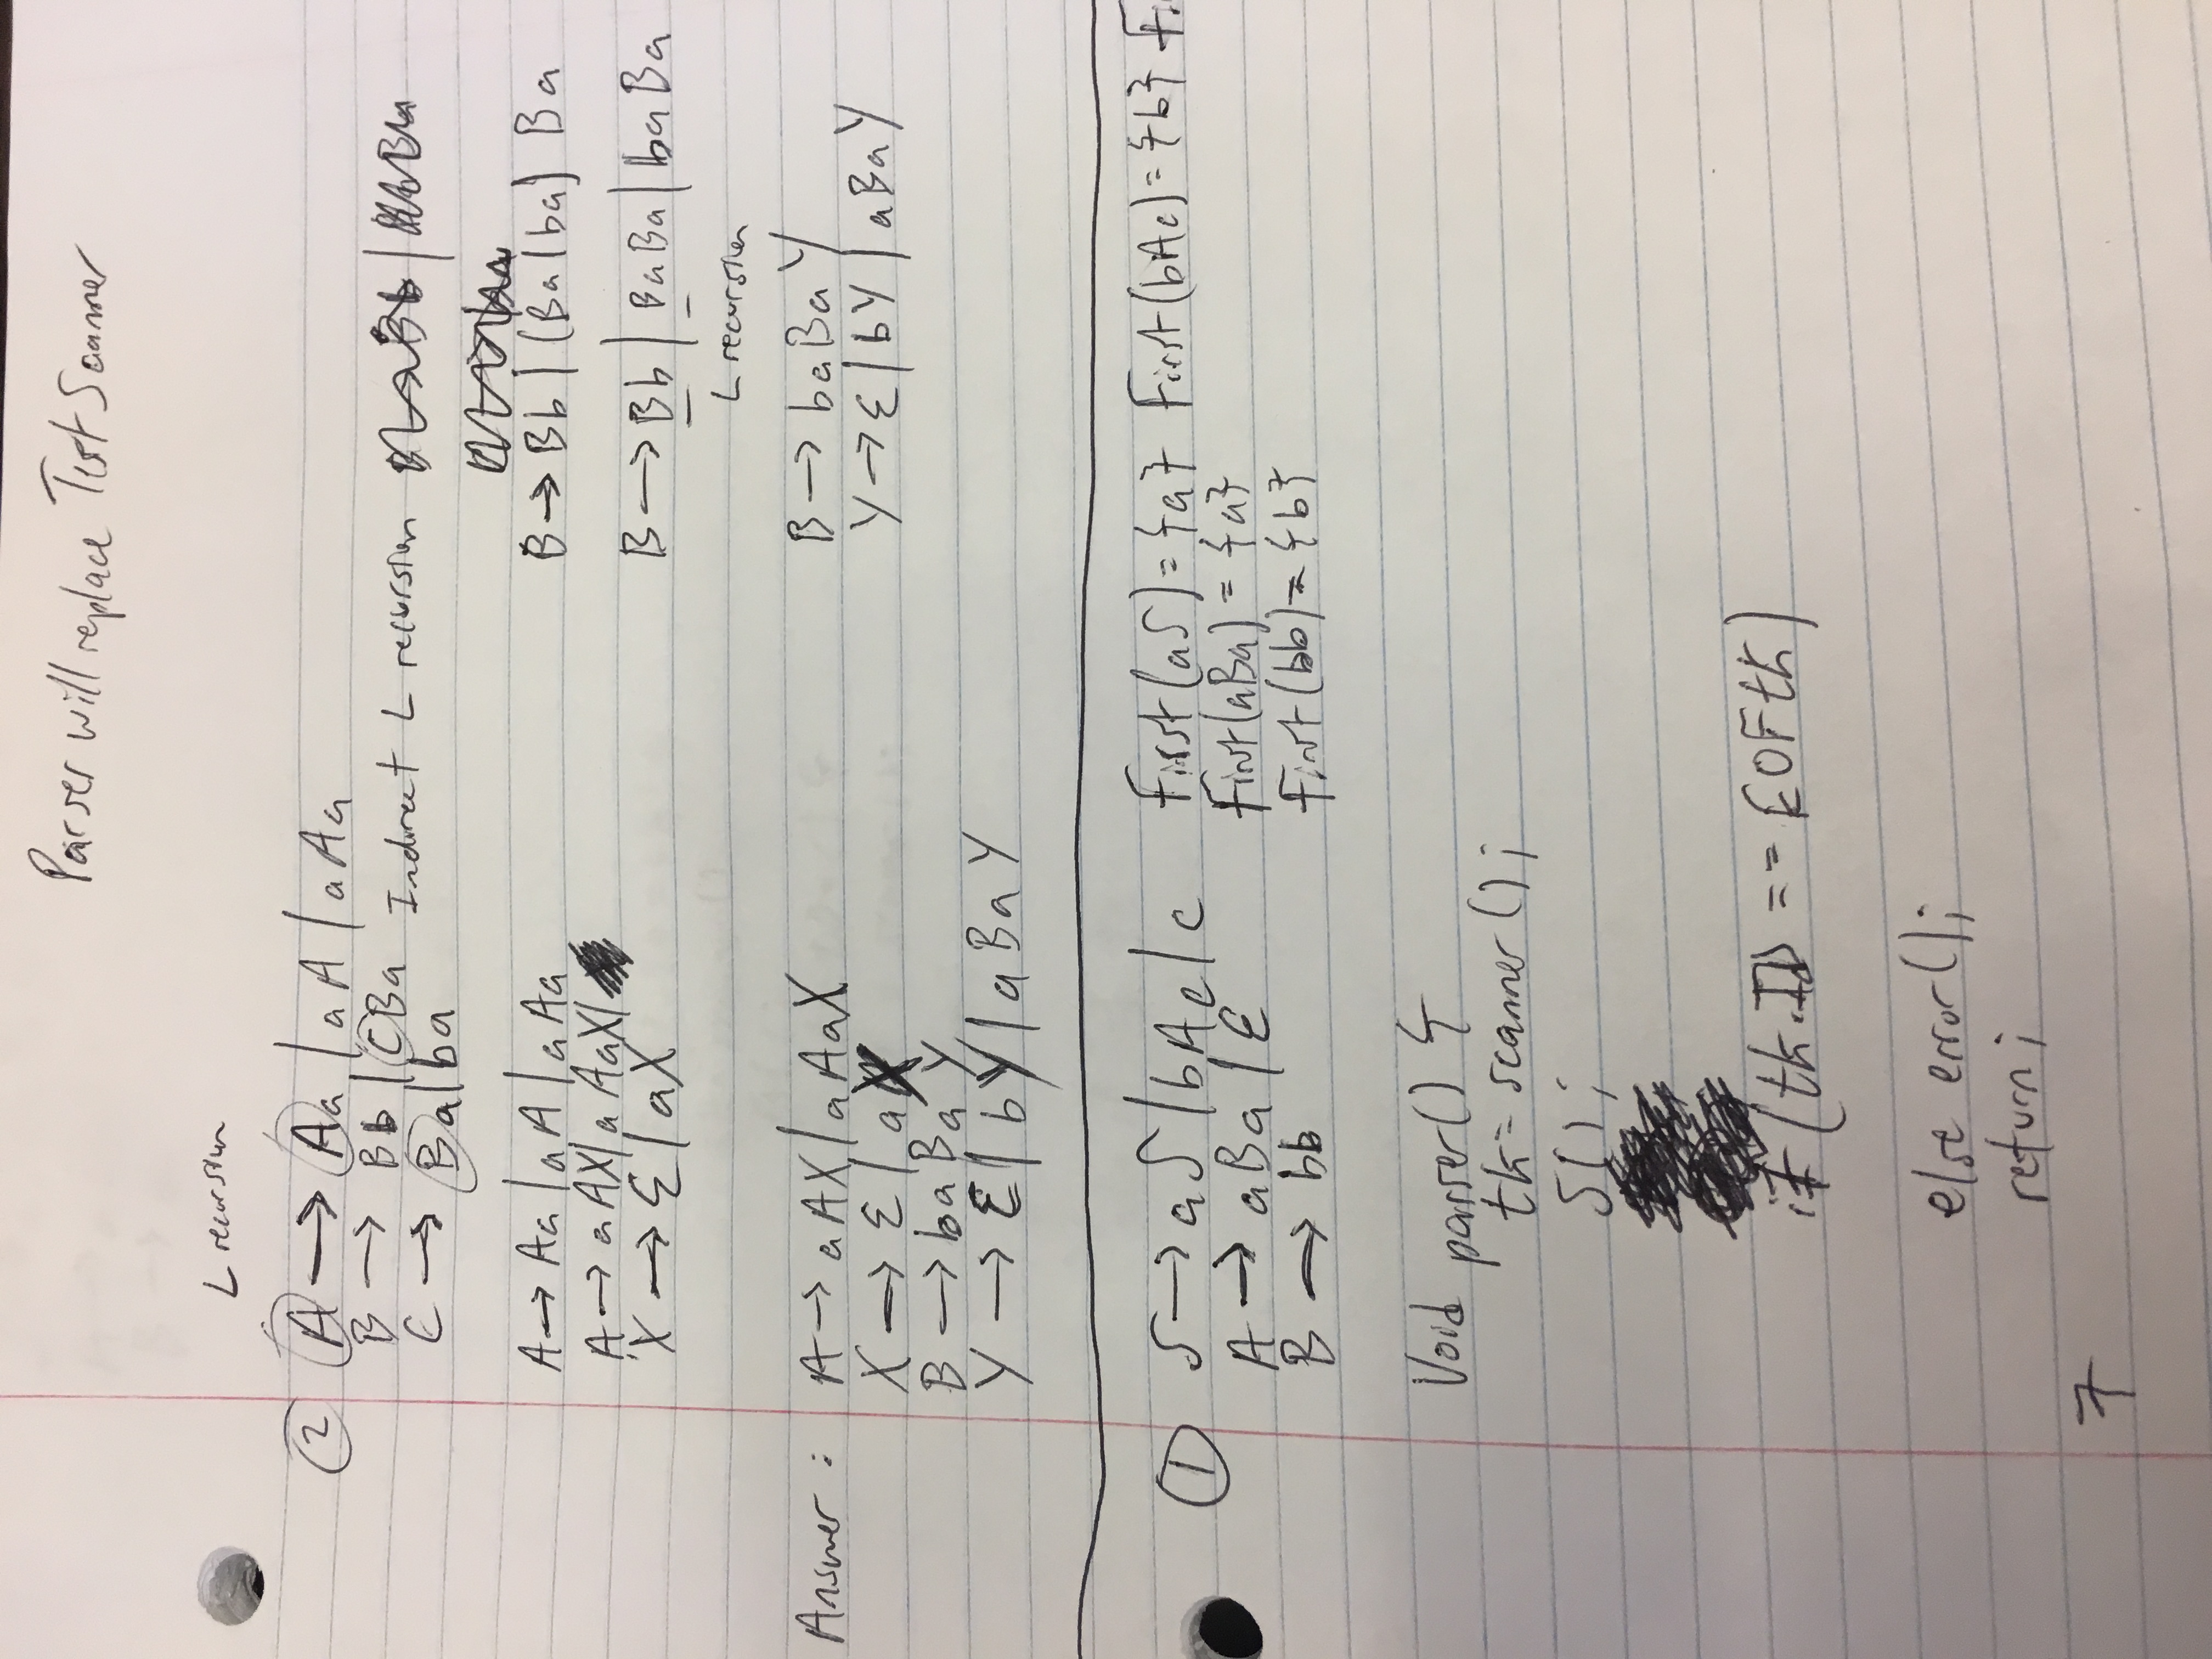 Parser will replace Test Scanner
L recursion
② A → Aa | aA | aAa
B → Bb | CBa Indirect L recursion
C → Ba | ba
A → Aa | aA | aAa
A → aAX | aAaX |
X → ε | aX
B → Bb | (Ba | ba) Ba
B → Bb | BaBa | baBa
L recursion
B → baBaY
Y → ε | bY | aBaY
Answer : A → aAX | aAaX
X → ε | aX
B → baBaY
Y → ε | bY | aBaY
① S → aS | bAc | c First(aS) = {a} First(bAc) = {b} Fi
A → aBa | ε First(aBa) = {a}
B → bb First(bb) = {b}
Void parser() {
tk = scanner();
S();
if (tk.ID == EOFtk)
else error();
return;
}